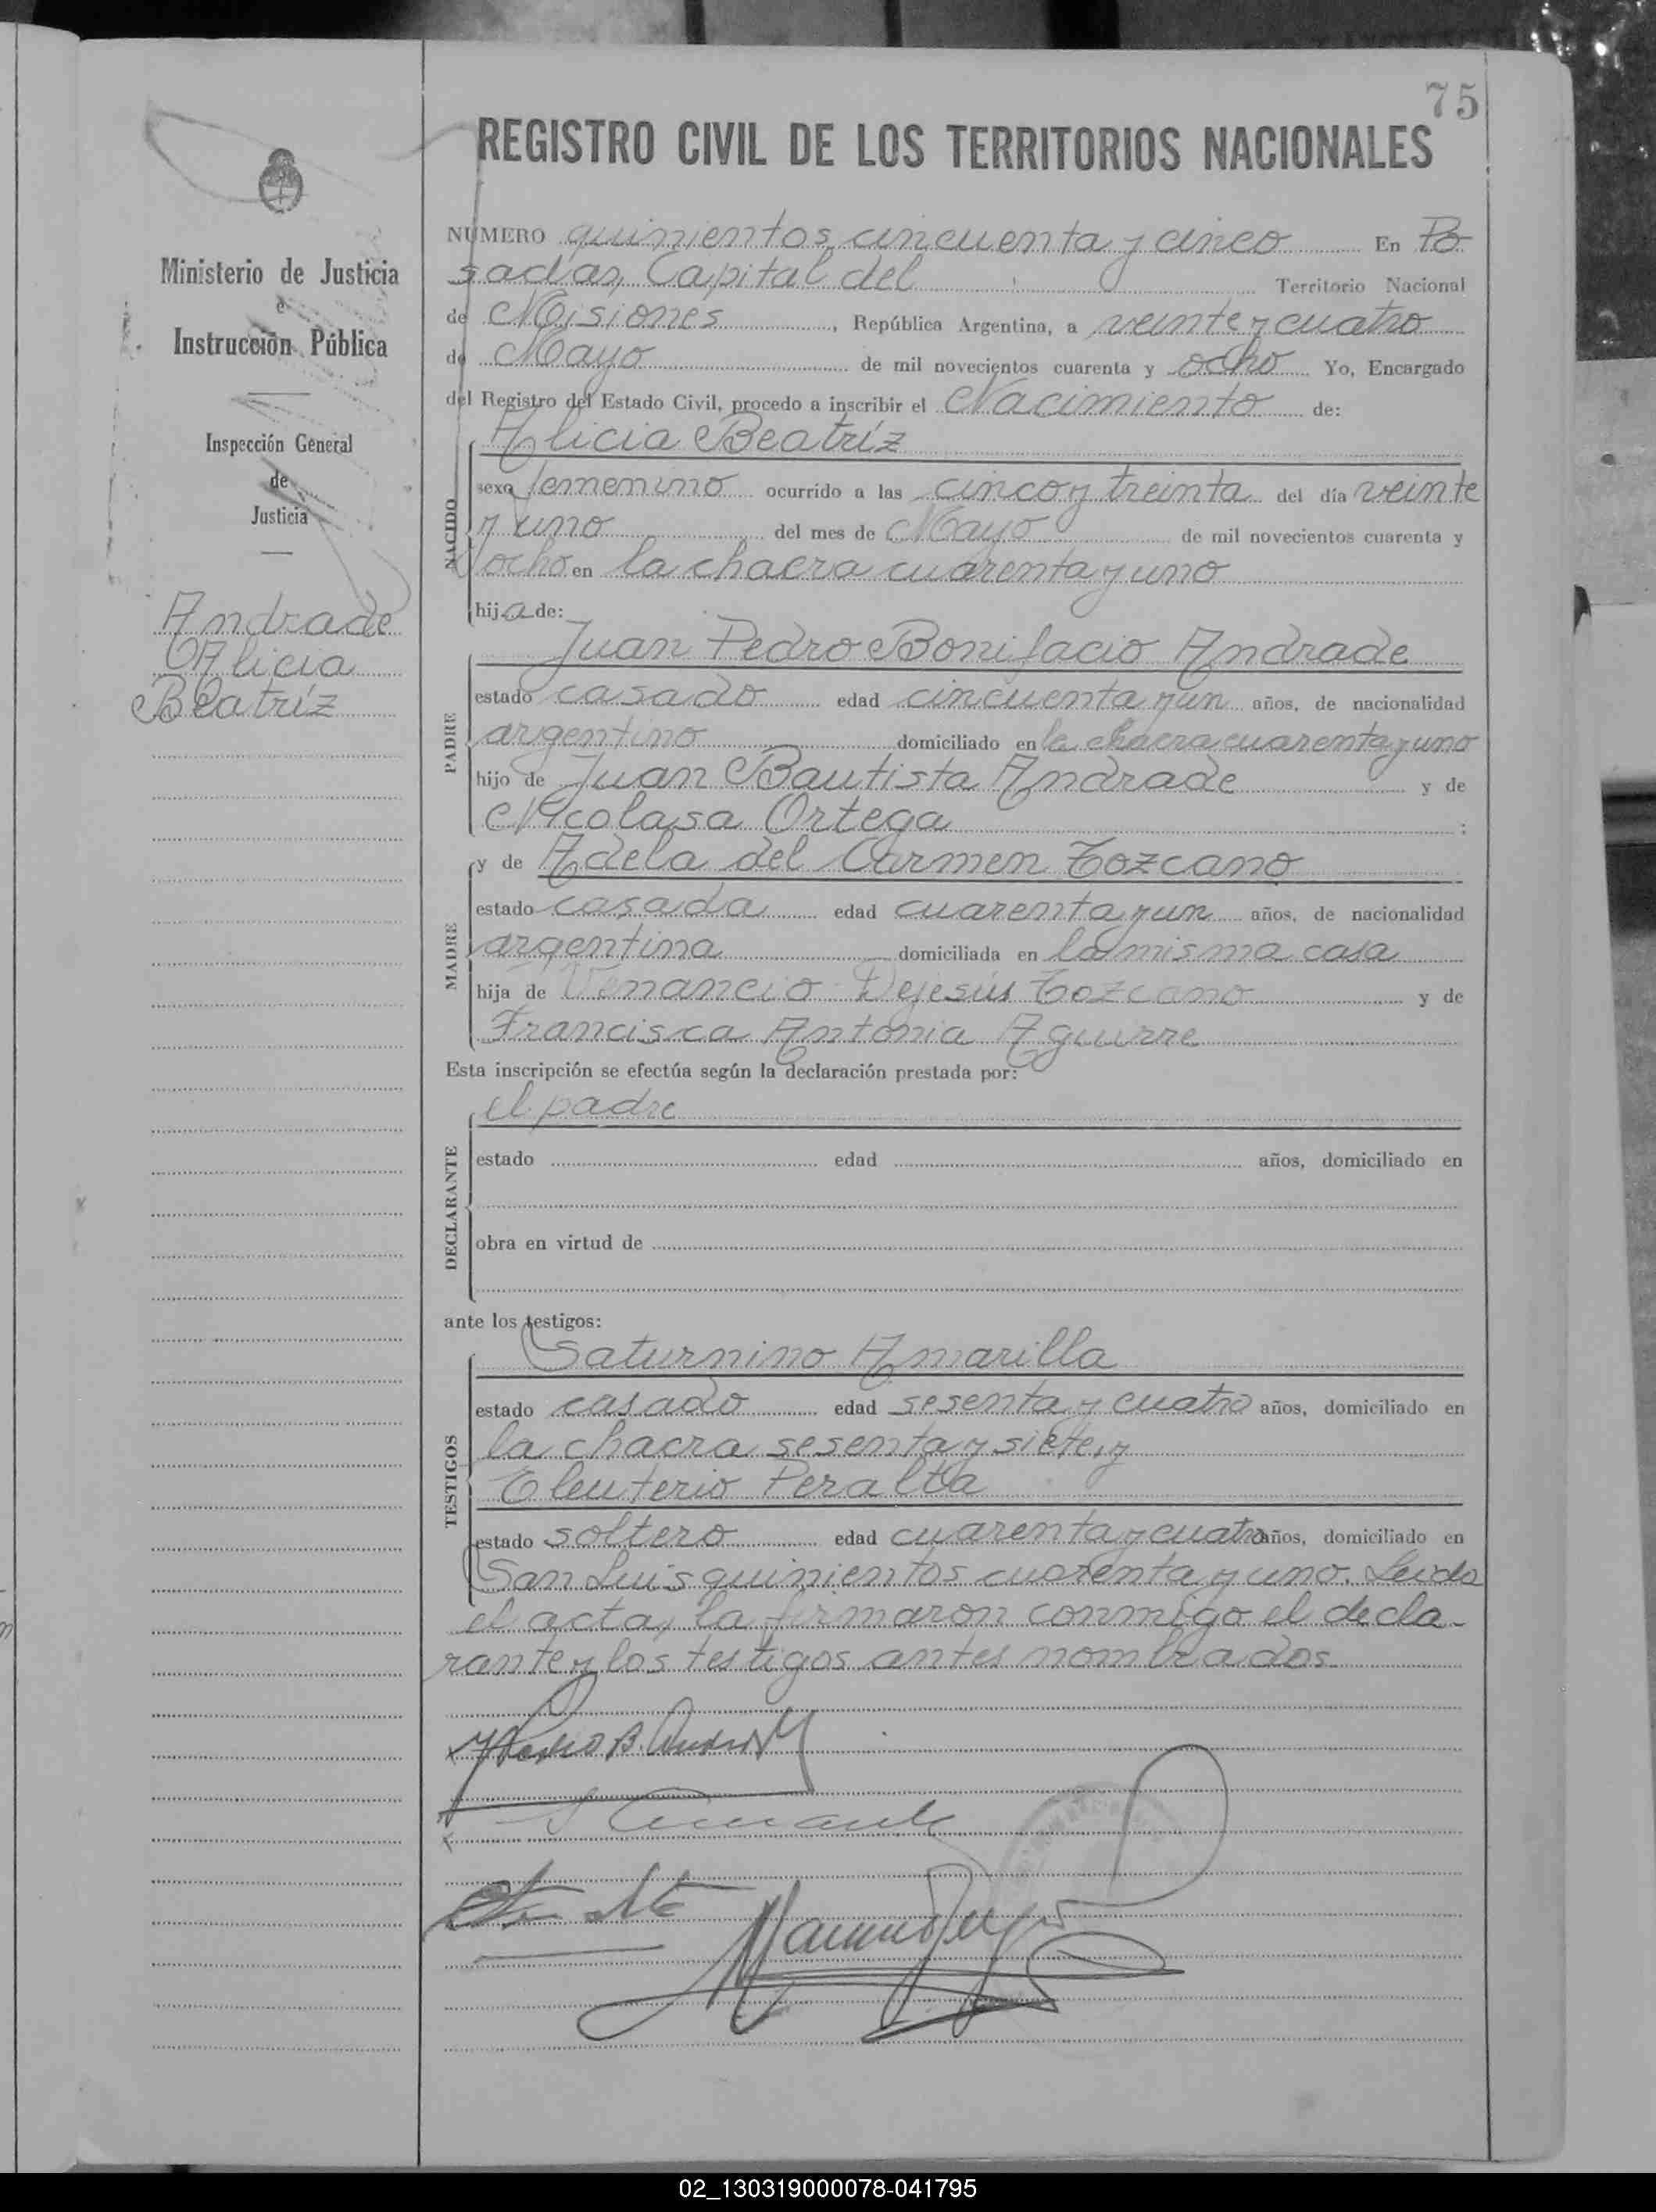 75
REGISTRO CIVIL DE LOS TERRITORIOS NACIONALES
Ministerio de Justicia
e
Instrucción Pública
Inspección General
de
Justicia
Andrade
Alicia
Beatríz
NUMERO quinientos cincuenta y cinco En Po-
sadas, Capital del Territorio Nacional
de Misiones, República Argentina, a veinte y cuatro
de Mayo de mil novecientos cuarenta y ocho Yo, Encargado
del Registro del Estado Civil, procedo a inscribir el Nacimiento de:
NACIDO
Alicia Beatríz
sexo femenino ocurrido a las cinco y treinta del día veinte
y uno del mes de Mayo de mil novecientos cuarenta y
ocho en la chacra cuarenta y uno
hija de:
PADRE
Juan Pedro Bonifacio Andrade
estado casado edad cincuenta y un años, de nacionalidad
argentino domiciliado en la chacra cuarenta y uno
hijo de Juan Bautista Andrade y de
Nicolasa Ortega ;
MADRE
y de Adela del Carmen Tozcano
estado casada edad cuarenta y un años, de nacionalidad
argentina domiciliada en la misma casa
hija de Venancio Dejesús Tozcano y de
Francisca Antonia Aguirre
Esta inscripción se efectúa según la declaración prestada por:
DECLARANTE
el padre
estado edad años, domiciliado en
obra en virtud de
ante los testigos:
TESTIGOS
Saturnino Amarilla
estado casado edad sesenta y cuatro años, domiciliado en
la chacra sesenta y siete, y
Eleuterio Peralta
estado soltero edad cuarenta y cuatro años, domiciliado en
San Luis quinientos cuarenta y uno. Leida
el acta, la firmaron conmigo el decla-
rante y los testigos antes nombrados
Pedro B. Andrade
02_130319000078-041795